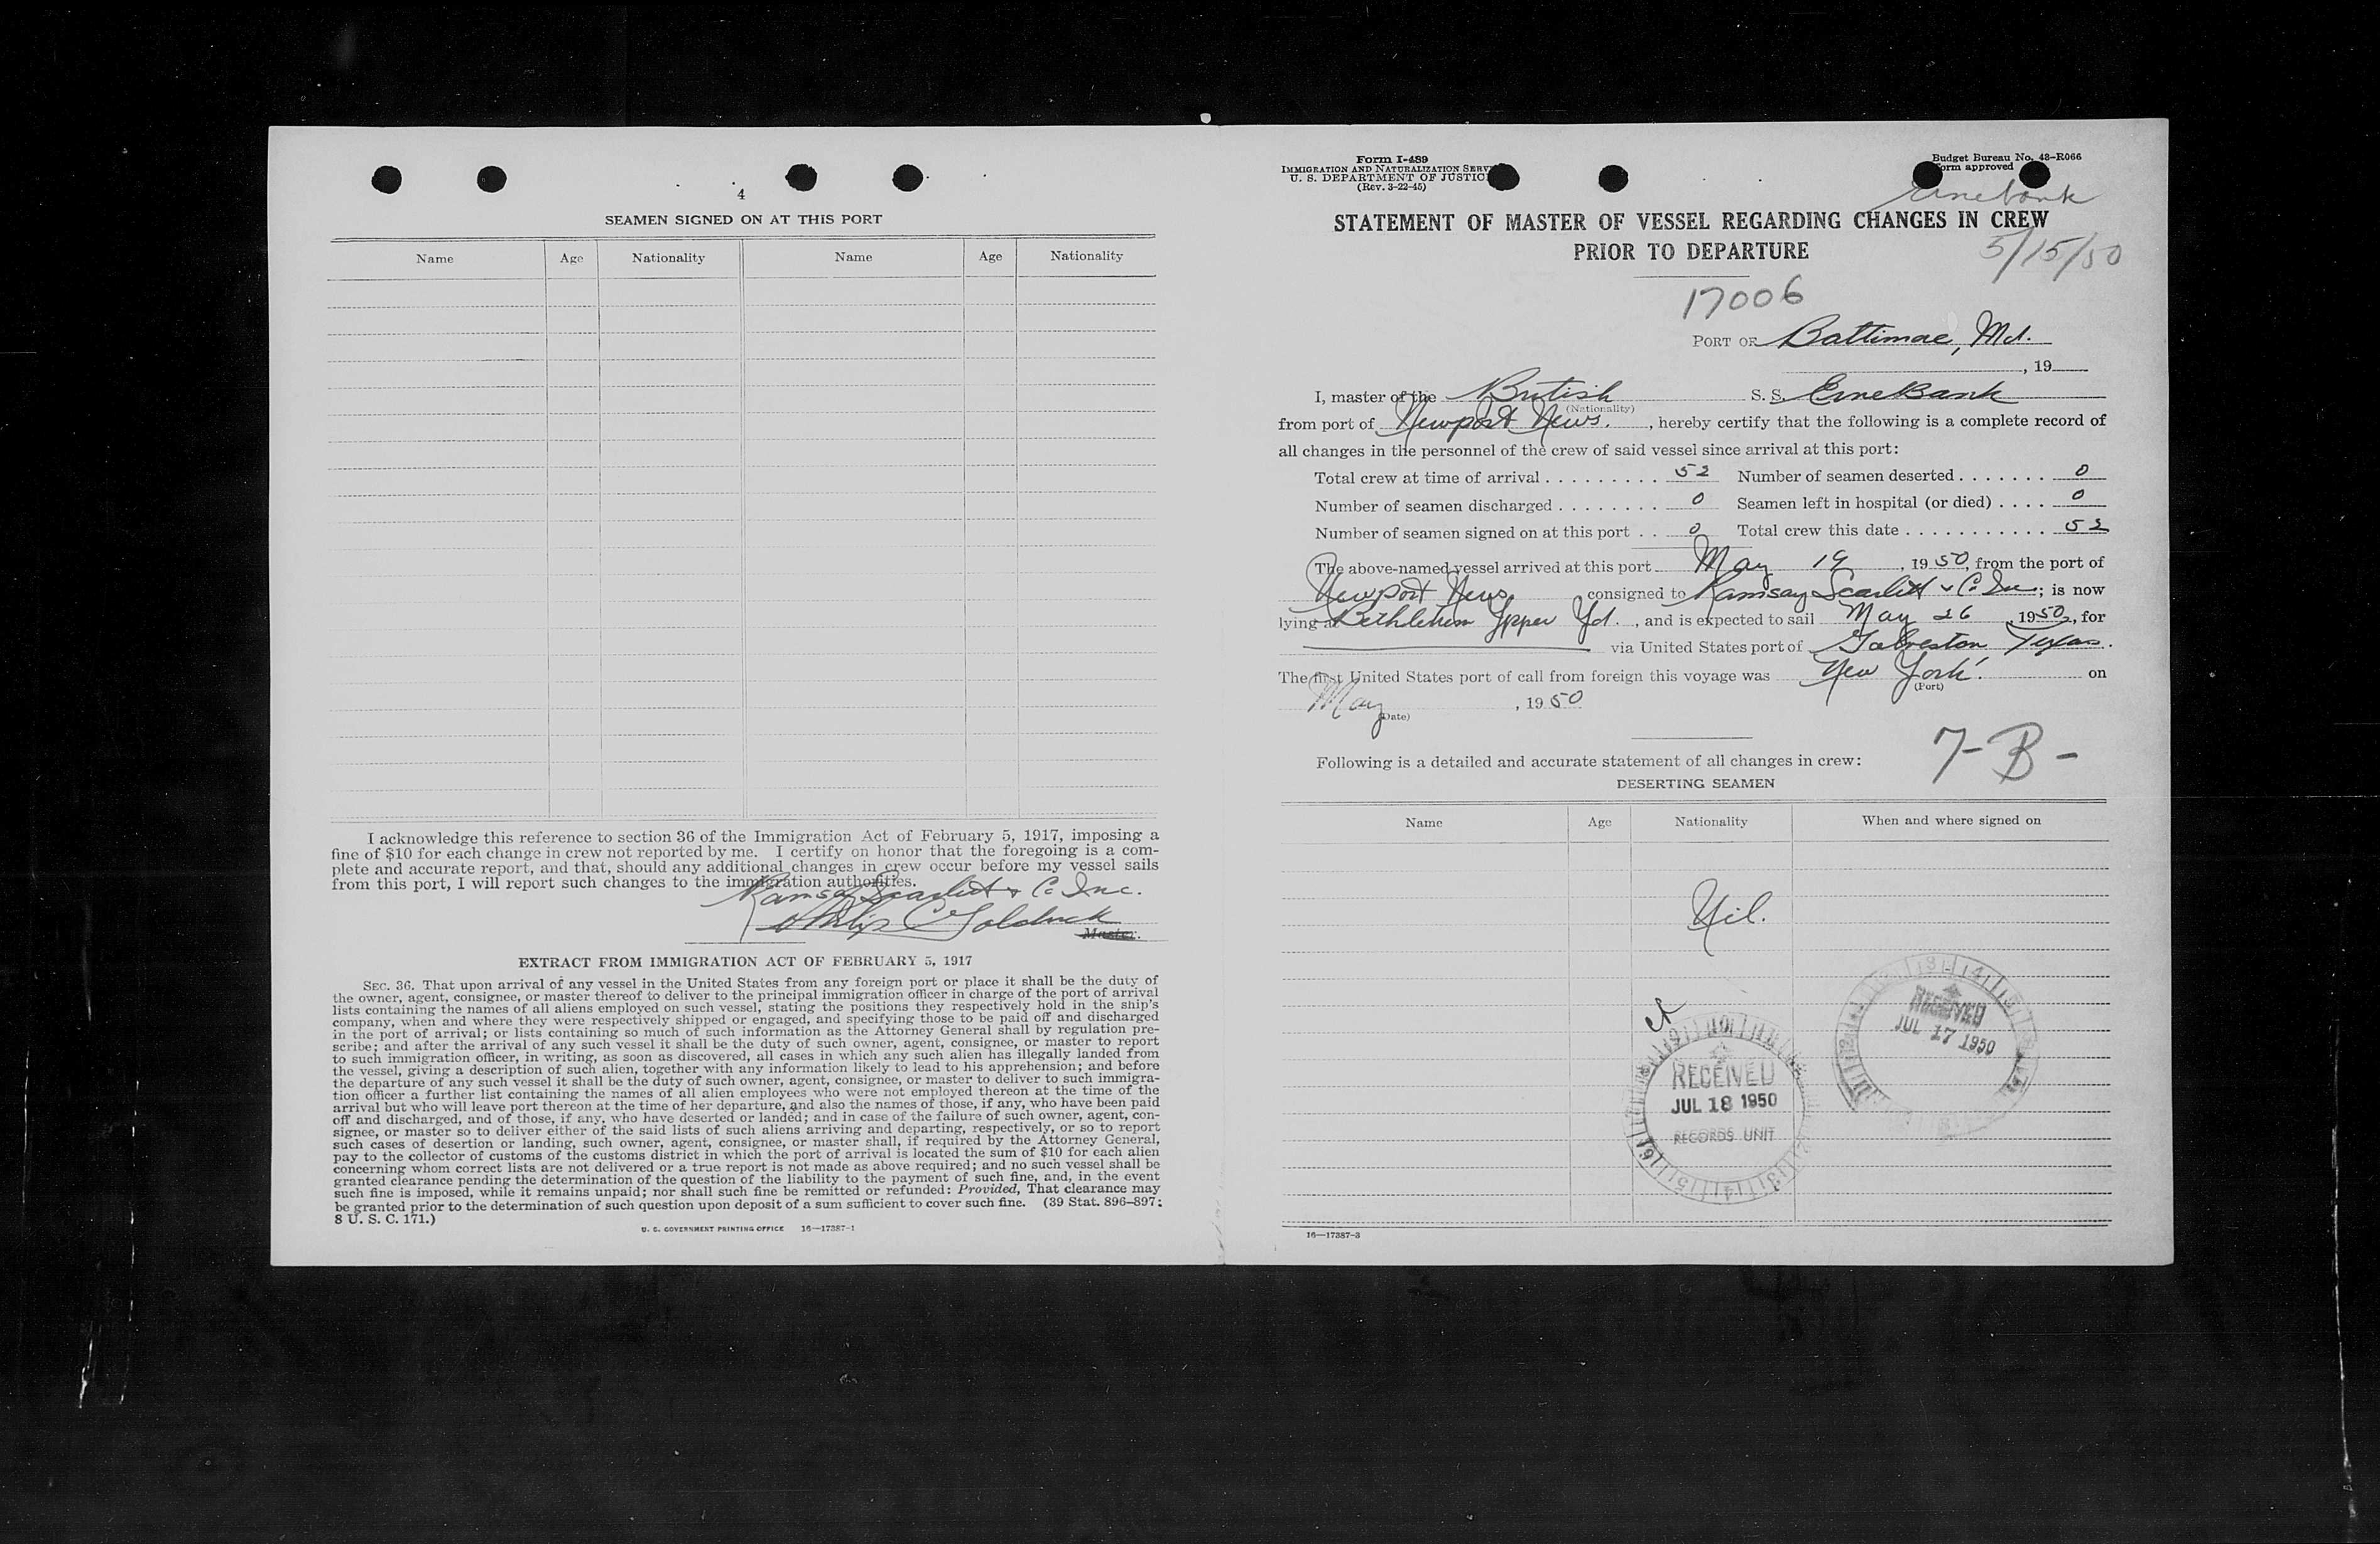 4
SEAMEN SIGNED ON AT THIS PORT
Name Age Nationality Name Age Nationality
I acknowledge this reference to section 36 of the Immigration Act of February 5, 1917, imposing a
fine of $10 for each change in crew not reported by me. I certify on honor that the foregoing is a com-
plete and accurate report, and that, should any additional changes in crew occur before my vessel sails
from this port, I will report such changes to the immigration authorities.
Ramsay Scarlett & Co Inc.
Philip C
Master.
EXTRACT FROM IMMIGRATION ACT OF FEBRUARY 5, 1917
SEC. 36. That upon arrival of any vessel in the United States from any foreign port or place it shall be the duty of
the owner, agent, consignee, or master thereof to deliver to the principal immigration officer in charge of the port of arrival
lists containing the names of all aliens employed on such vessel, stating the positions they respectively hold in the ship's
company, when and where they were respectively shipped or engaged, and specifying those to be paid off and discharged
in the port of arrival; or lists containing so much of such information as the Attorney General shall by regulation pre-
scribe; and after the arrival of any such vessel it shall be the duty of such owner, agent, consignee, or master to report
to such immigration officer, in writing, as soon as discovered, all cases in which any such alien has illegally landed from
the vessel, giving a description of such alien, together with any information likely to lead to his apprehension; and before
the departure of any such vessel it shall be the duty of such owner, agent, consignee, or master to deliver to such immigra-
tion officer a further list containing the names of all alien employees who were not employed thereon at the time of the
arrival but who will leave port thereon at the time of her departure, and also the names of those, if any, who have been paid
off and discharged, and of those, if any, who have deserted or landed; and in case of the failure of such owner, agent, con-
signee, or master so to deliver either of the said lists of such aliens arriving and departing, respectively, or so to report
such cases of desertion or landing, such owner, agent, consignee, or master shall, if required by the Attorney General,
pay to the collector of customs of the customs district in which the port of arrival is located the sum of $10 for each alien
concerning whom correct lists are not delivered or a true report is not made as above required; and no such vessel shall be
granted clearance pending the determination of the question of the liability to the payment of such fine, and, in the event
such fine is imposed, while it remains unpaid; nor shall such fine be remitted or refunded: Provided, That clearance may
be granted prior to the determination of such question upon deposit of a sum sufficient to cover such fine. (39 Stat. 896–897;
8 U. S. C. 171.)
U. S. GOVERNMENT PRINTING OFFICE 16—17387-1
Form I-489
IMMIGRATION AND NATURALIZATION SERV
U. S. DEPARTMENT OF JUSTIC
(Rev. 3-22-45)
Budget Bureau No. 43-R066
orm approved
Ernebank
STATEMENT OF MASTER OF VESSEL REGARDING CHANGES IN CREW
PRIOR TO DEPARTURE
5/15/50
17006
PORT OF Baltimore, Md.
, 19
I, master of the British S. S. ErneBank
(Nationality)
from port of Newport News. , hereby certify that the following is a complete record of
all changes in the personnel of the crew of said vessel since arrival at this port:
Total crew at time of arrival . . . . . . . . . 52 Number of seamen deserted . . . . . . . 0
Number of seamen discharged . . . . . . . . 0 Seamen left in hospital (or died) . . . . 0
Number of seamen signed on at this port . . 0 Total crew this date . . . . . . . . . . . 52
The above-named vessel arrived at this port May 19, 1950, from the port of
Newport News consigned to Ramsay Scarlett & Co. Inc; is now
lying at Bethlehem Upper Yd. , and is expected to sail May 26, 1950, for
via United States port of Galveston Texas.
The first United States port of call from foreign this voyage was New York. on
(Port)
May , 1950
(Date)
7-B-
Following is a detailed and accurate statement of all changes in crew:
DESERTING SEAMEN
Name Age Nationality When and where signed on
Nil.
RECEIVED
JUL 17 1950
RECEIVED
JUL 18 1950
RECORDS UNIT
16—17387-3